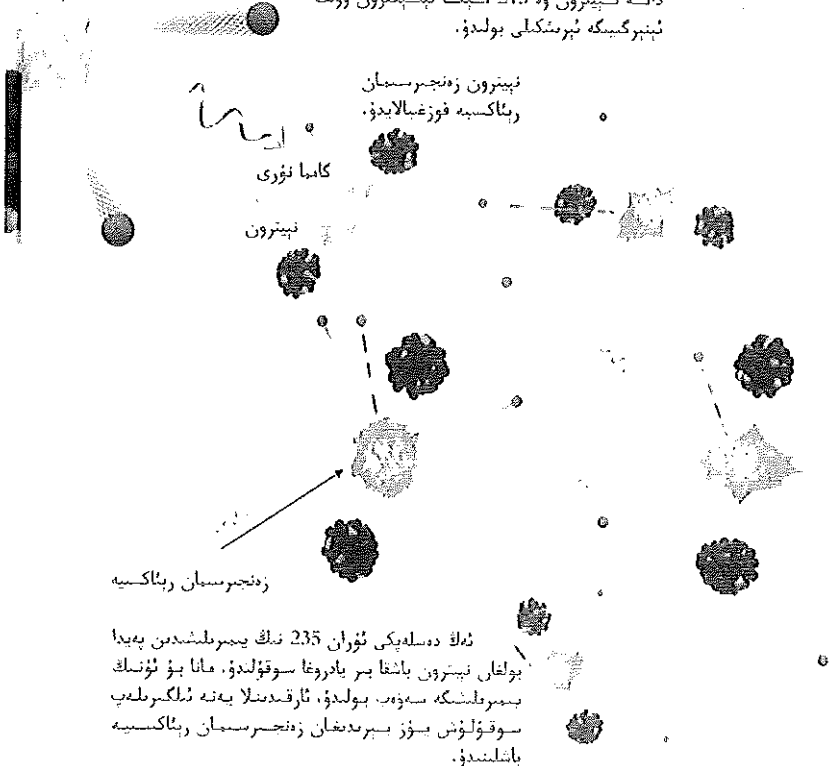 ئېنېرگىيىگە ئېرىشكىلى بولىدۇ.
نېيترون زەنجىرسىمان
رېئاكسىيە قوزغىيالايدۇ.
گامما نۇرى
نېيترون
زەنجىرسىمان رېئاكسىيە
ئەڭ دەسلەپكى ئۇران 235 نىڭ يىمىرىلىشىدىن پەيدا
بولغان نېيترون باشقا بىر يادروغا سوقۇلىدۇ، مانا بۇ ئۇنىڭ
يىمىرىلىشىگە سەۋەب بولىدۇ، ئارقىدىنلا يەنە ئىلگىرىلەپ
سوقۇلۇش يۈز بېرىدىغان زەنجىرسىمان رېئاكسىيە
باشلىنىدۇ.